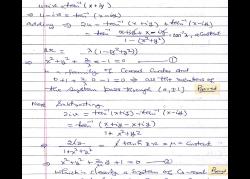 u+iv = tan⁻¹ (x+iy)
⇒ u-iv = tan⁻¹ (x-iy)
Adding ⇒ 2u = tan⁻¹ (x+iy) + tan⁻¹ (x-iy)
= tan⁻¹ x+iy + x-iy / 1-(x²+y²)
2x = λ(1-(x²+y²))
⇒ x²+y²+ 2/λ x -1 = 0 — ①
family of Coaxal Circles and
0+1+ 2/λ·0 -1 = 0 ⇒ all the members of
the system pass through (0,±1) Proved
Now Subtracting
2iv = tan⁻¹ (x+iy) - tan⁻¹ (x-iy)
= tan⁻¹ (x+iy - x+iy)
1+x²+y²
⇒ 2iy / 1+x²+y² = = Constant
⇒ x²+y²+ y+1 = 0 — ②
Which is clearly a system of Co-axal